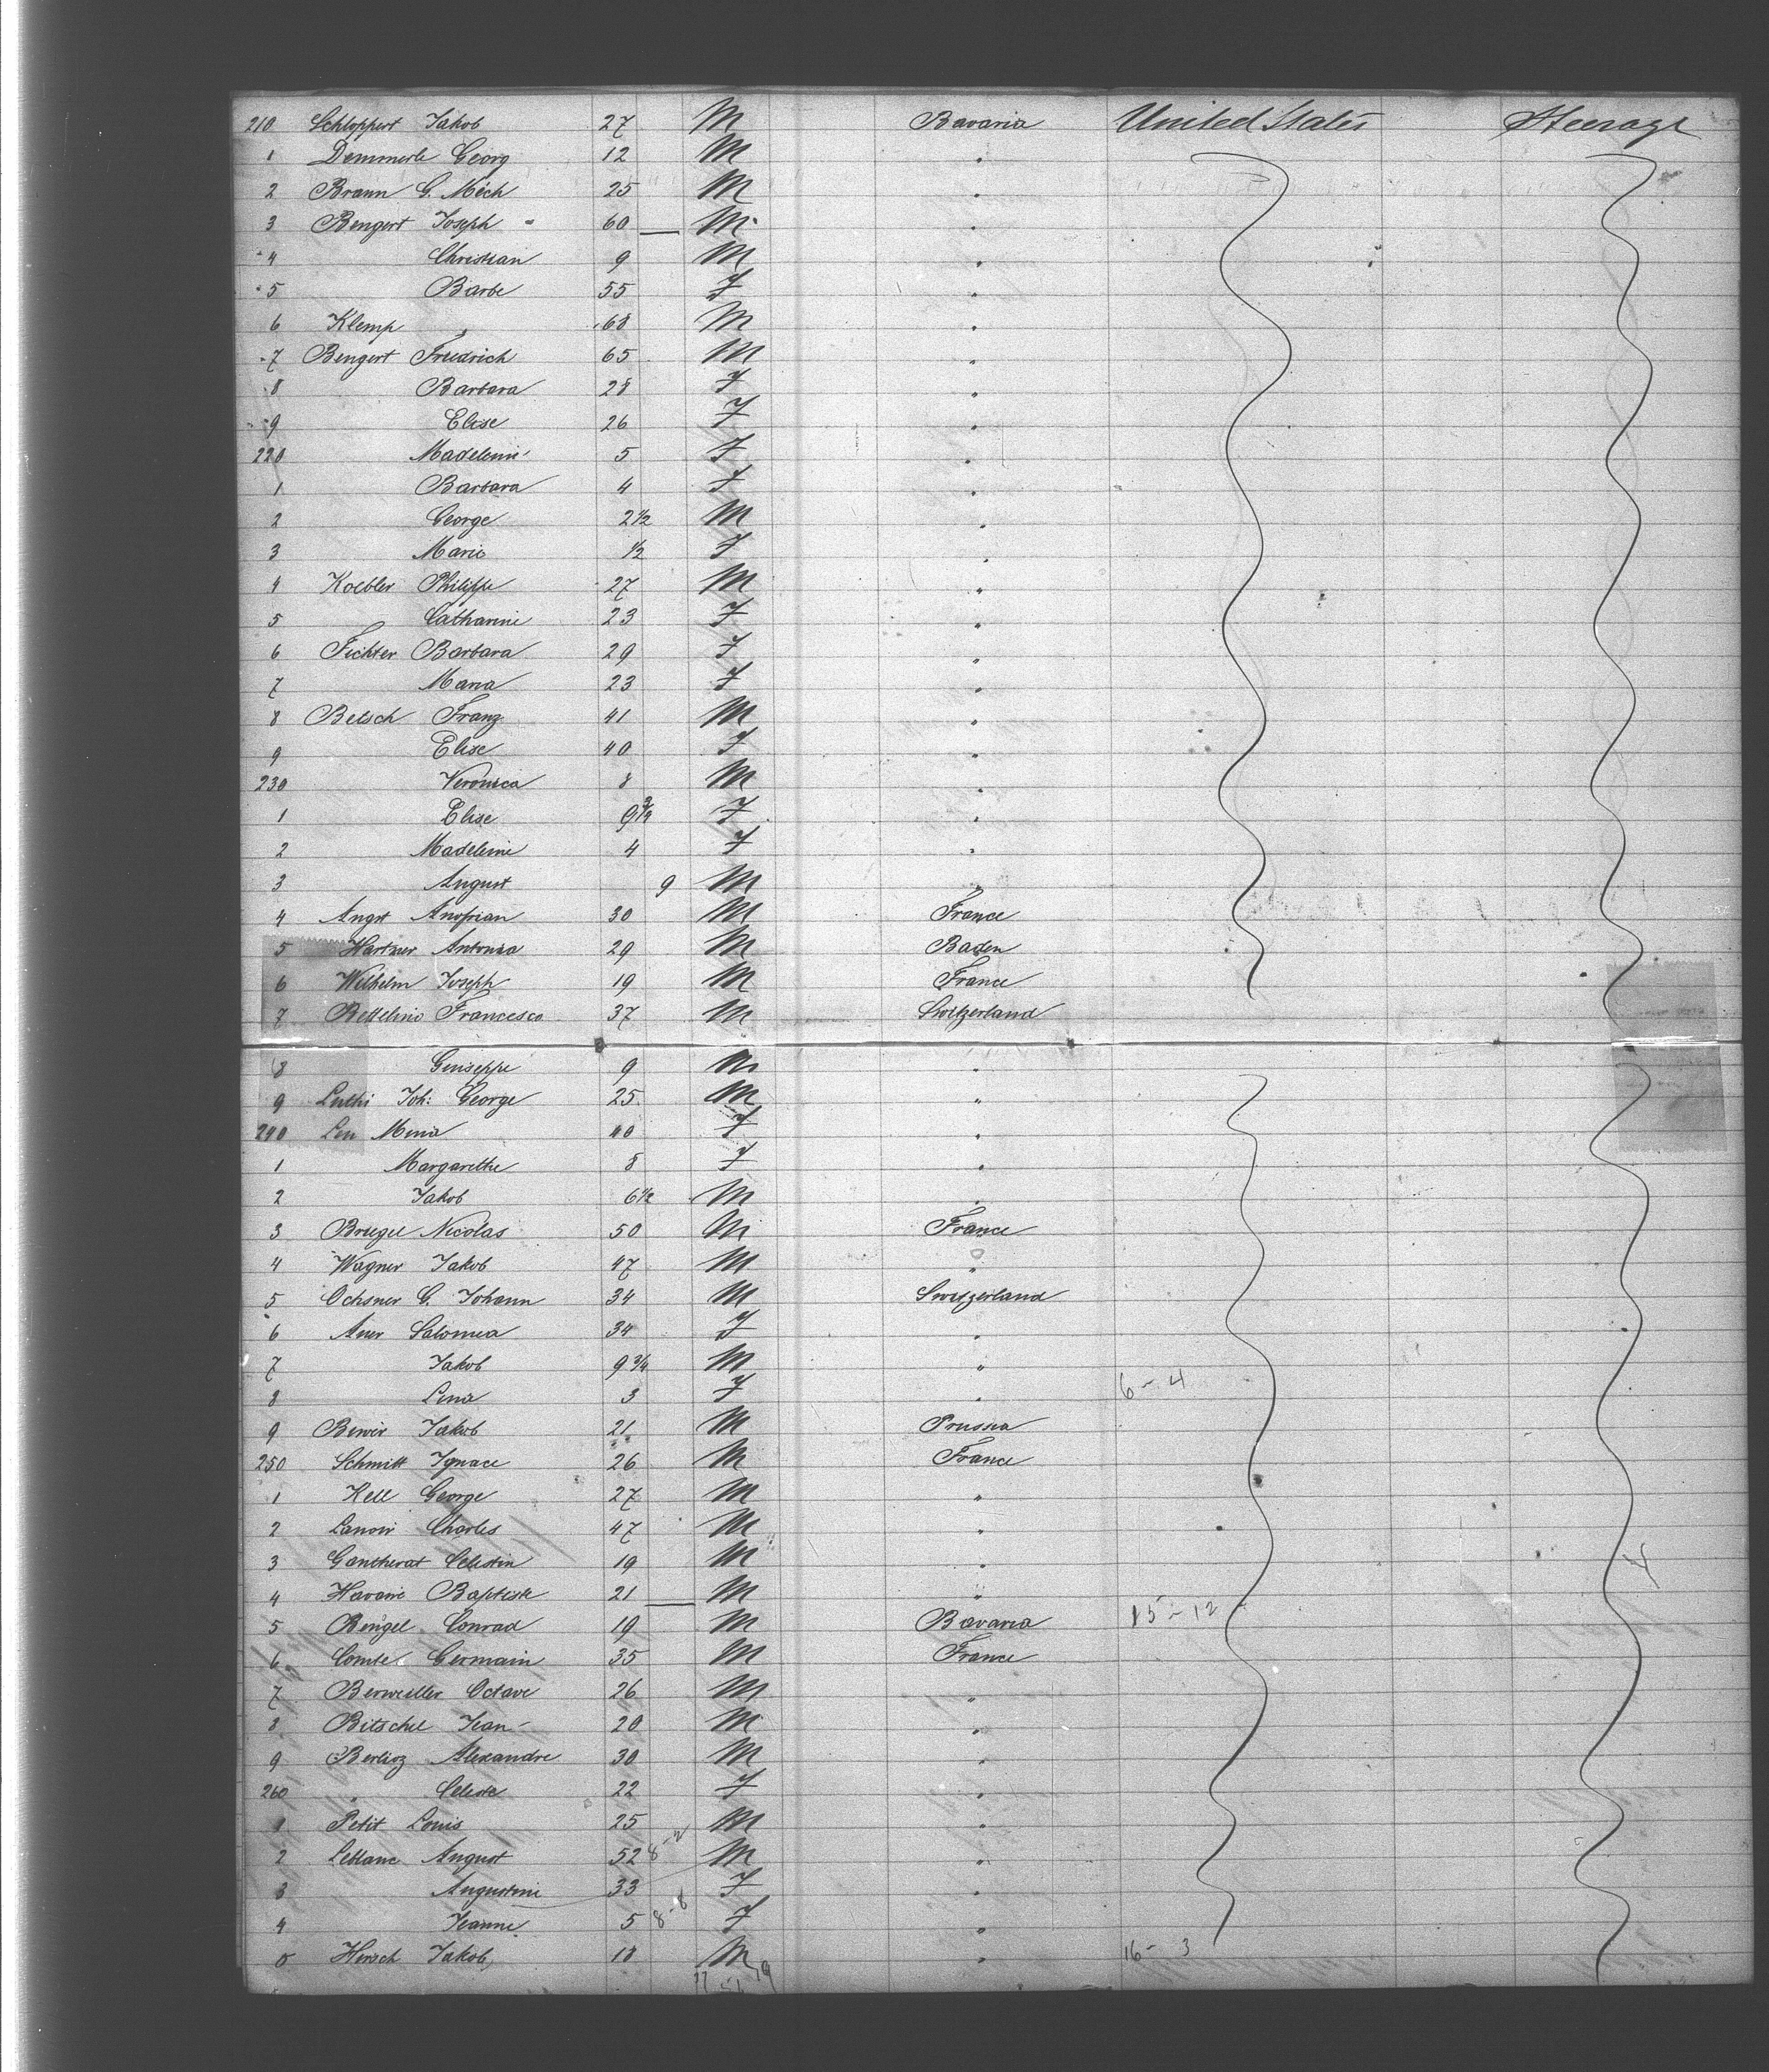 210 Schloppert Jakob 27 M Bavaria United States Steerage
1 Demmerle Georg 12 M "
2 Braun G. Mich 25 M "
3 Bengert Joseph 60 M "
4 Christian 9 M "
5 Barbe 55 F "
6 Klemp " 68 M "
7 Bengert Friedrich 65 M "
8 Barbara 28 F "
9 Elise 26 F "
220 Madeleine 5 F "
1 Barbara 4 F "
2 George 2 1/2 M "
3 Marie 1/2 F "
4 Koebler Philippe 27 M "
5 Catharine 23 F "
6 Fichter Barbara 29 F "
7 Maria 23 F "
8 Betsch Franz 41 M "
9 Elise 40 F "
230 Veronica 8 M "
1 Elise 9 3/4 F "
2 Madeleine 4 F "
3 August 9 M "
4 Angst 30 M France
5 Hartner Antonia 29 M Baden
6 Wilhelm Joseph 19 M France
7 Bettelino Francesco 37 M Switzerland
8 Geniseppe 9 M "
9 Luthi Joh: George 25 M "
240 Leu 40 F "
1 Margarethe 8 F "
2 Jakob 6 1/2 M "
3 Bruegel Nicolas 50 M France
4 Wagner Jakob 47 M "
5 Ochsner G. Johann 34 M Switzerland
6 Auer Salomea 34 F "
7 Jakob 9 3/4 M "
8 Lina 3 F " 6-4
9 Jakob 21 M Prussia
250 Schmitt Ignace 26 M France
1 Kell George 27 M "
2 Lanoir Charles 47 M "
3 Gantherat Celestin 19 M "
4 Baptiste 21 M "
5 Rengel Conrad 19 M Bavaria 15-12
6 Comte Germain 35 M France
7 Berweiller Octave 26 M "
8 Bitschel Jean 20 M "
9 Berlioz Alexandre 30 M "
260 " Celeste 22 F "
1 Petit Louis 25 M "
2 Leblanc August 52 8-2 M "
3 Augustine 33 F "
4 Jeanne 5 8-8 F "
5 Hirsch Jakob 18 M " 16-3